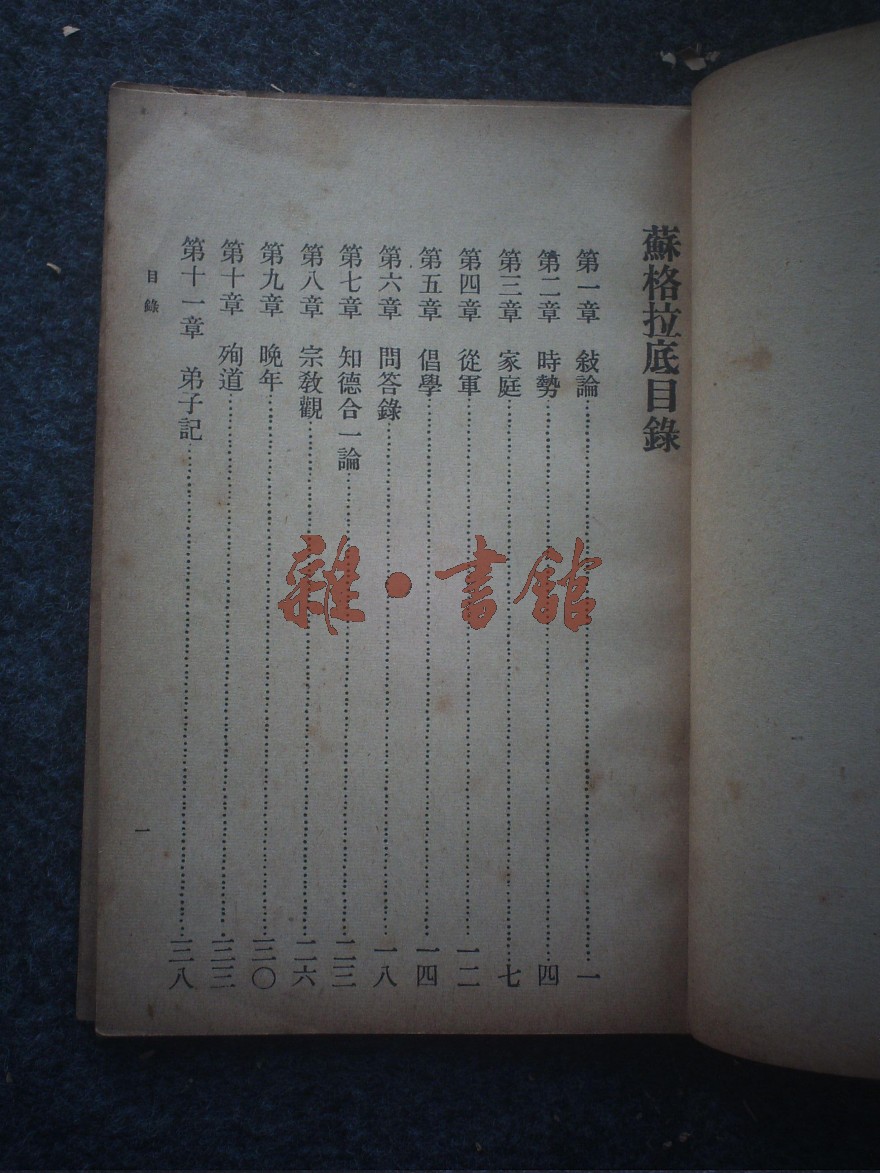 蘇格拉底目錄
第一章　敍論……一
第二章　時勢……四
第三章　家庭……七
第四章　從軍……一二
第五章　倡學……一四
第六章　問答錄……一八
第七章　知德合一論……二三
第八章　宗教觀……二六
第九章　晚年……三〇
第十章　殉道……三三
第十一章　弟子記……三八
目錄
一
雜・書館